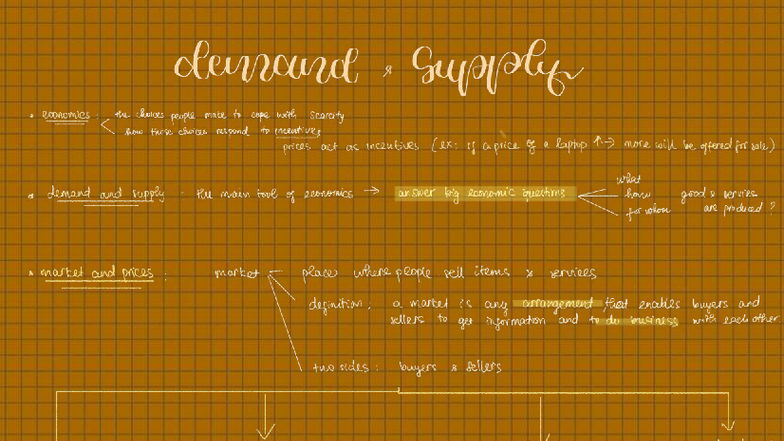 demand & supply
• economics : the choices people make to cope with scarcity
how those choices respond to incentives
prices act as incentives (ex: if a price of a laptop ↑ → more will be offered for sale)
• demand and supply : the main tool of economics → answer big economic questions
what
how
for whom
goods & services
are produced ?
• market and prices : market
place where people sell items & services
definition : a market is any arrangement that enables buyers and
sellers to get information and to do business with each other
two sides : buyers & sellers